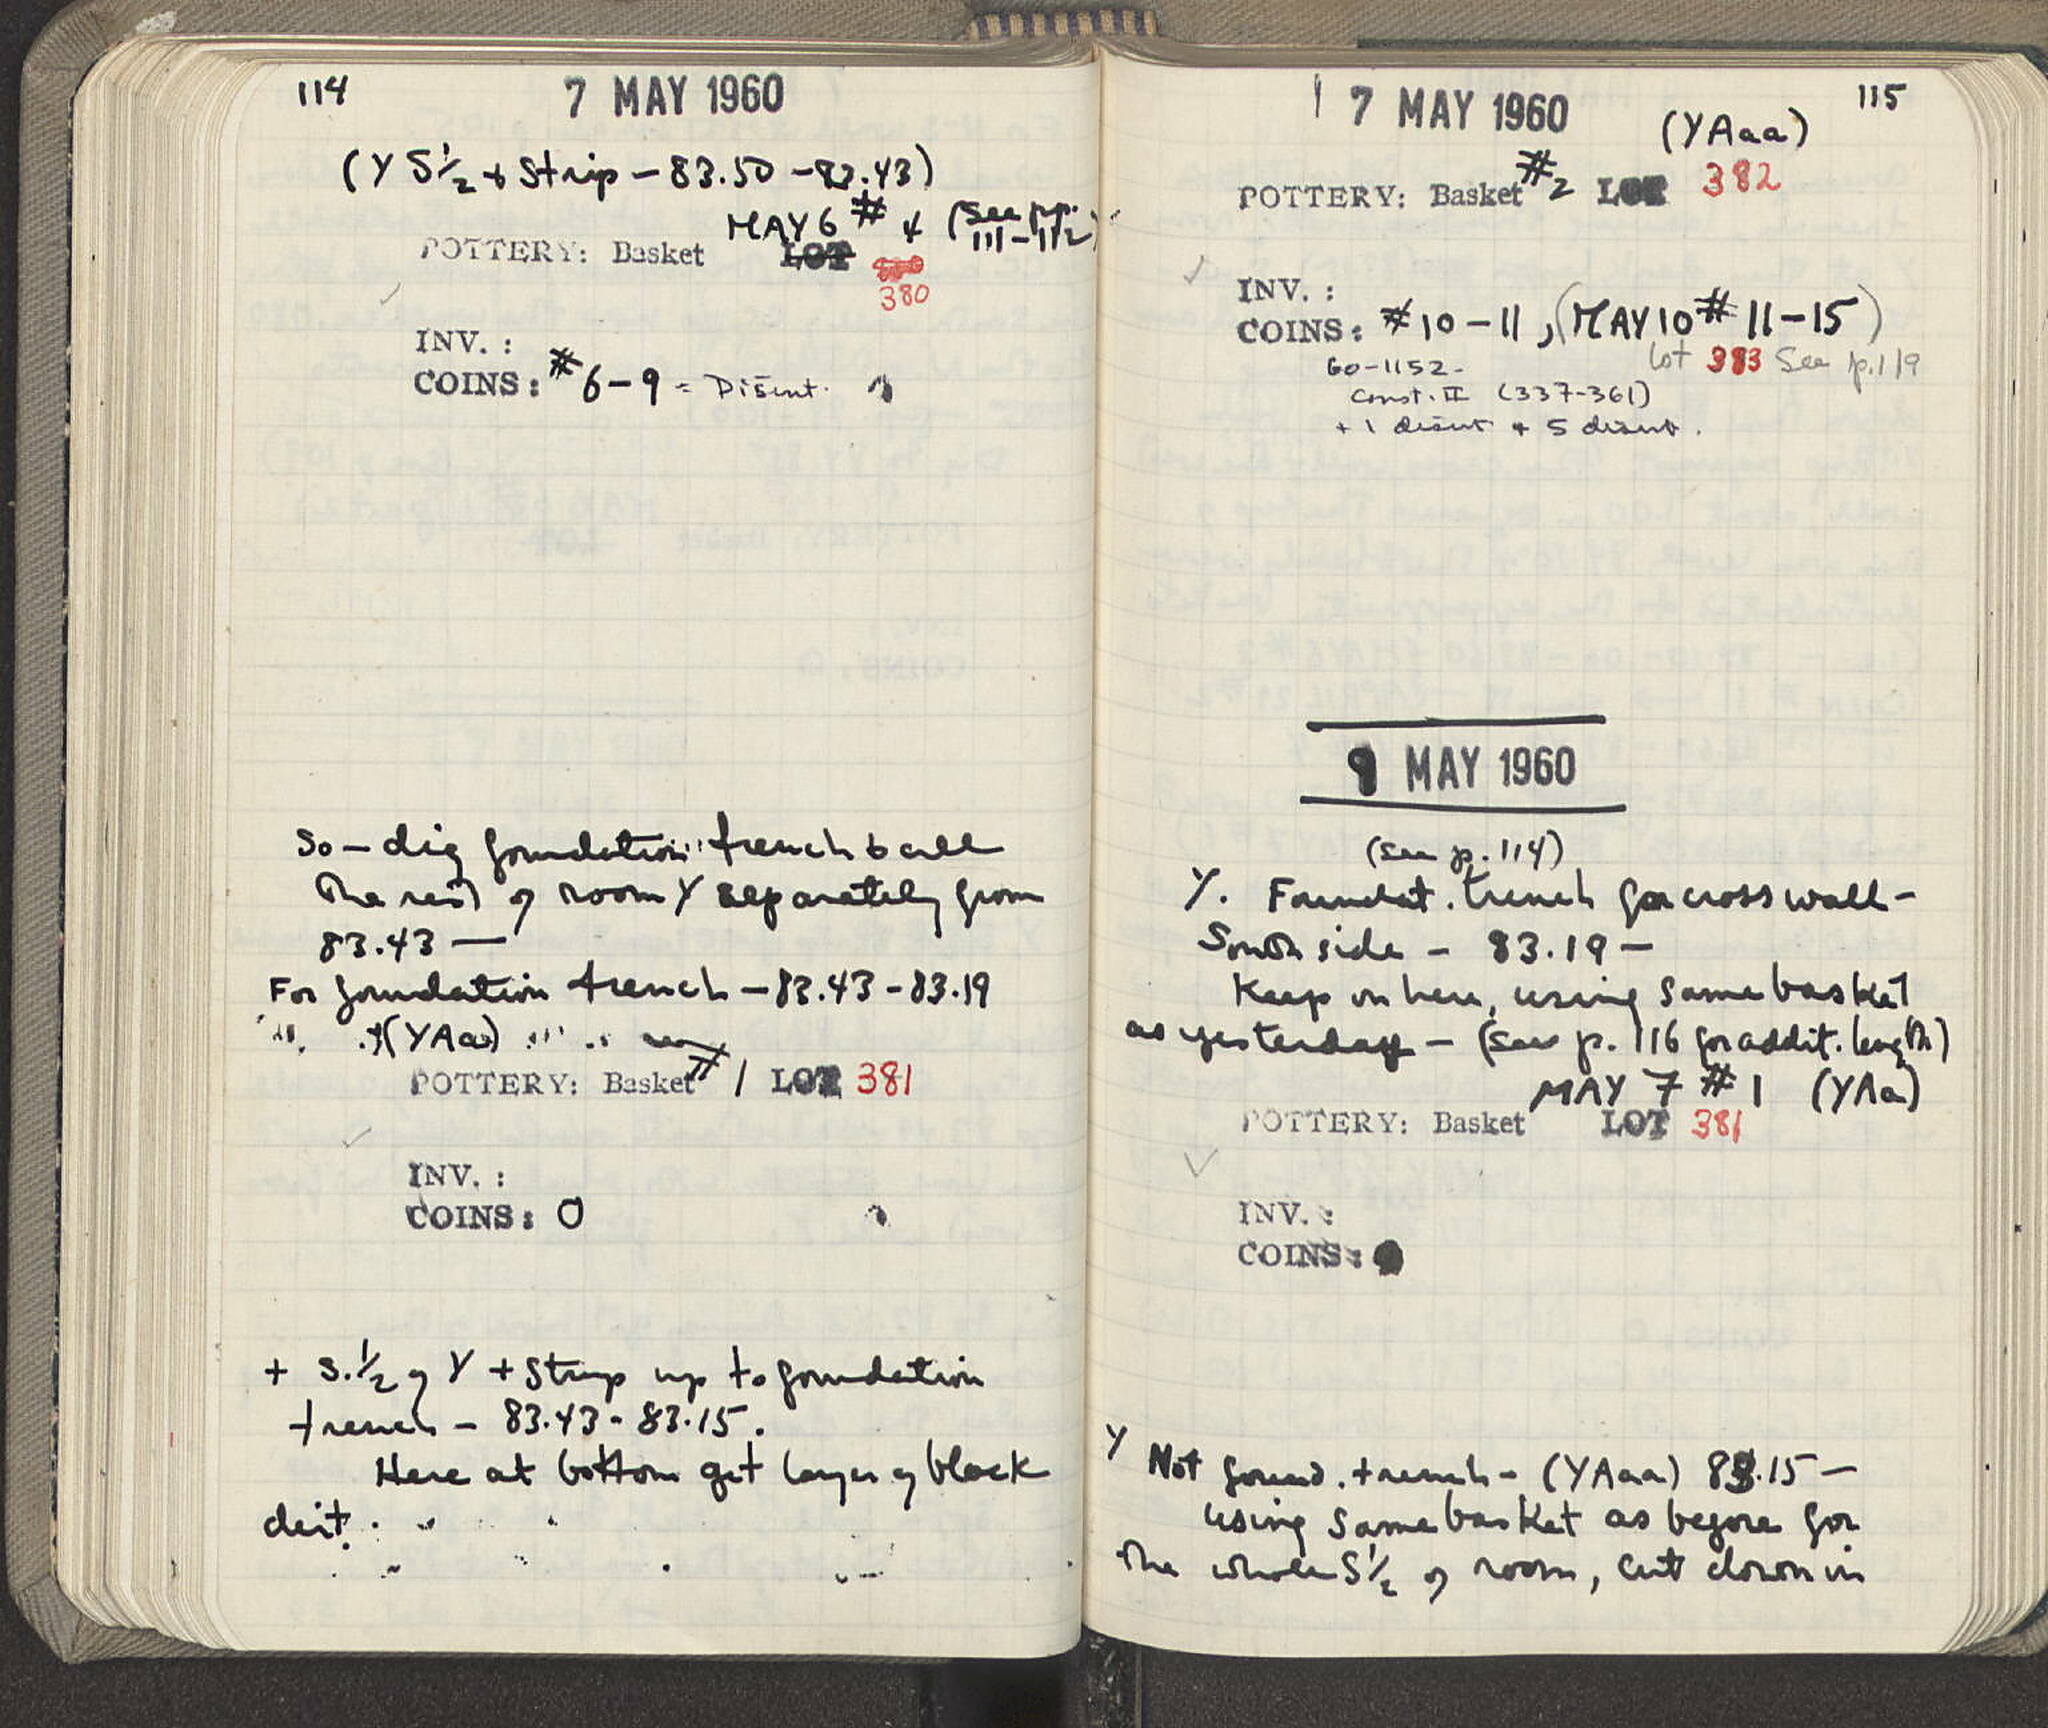 114
7 MAY 1960
(Y S 1/2 + Strip – 83.50 – 83.43)
MAY 6 # 4 (see pp. 111–112)
POTTERY: Basket LOT
380
INV. :
COINS: # 6–9 = Disint.
So – dig foundation trench & all
the rest of room Y separately from
83.43 —
For foundation trench – 83.43 – 83.19
(YAa)
POTTERY: Basket # 1 LOT 381
INV. :
COINS: 0
+ S. 1/2 of Y + Strip up to foundation
trench – 83.43 - 83.15.
Here at bottom get layer of black
dirt.
115
7 MAY 1960
(YAaa)
POTTERY: Basket #2 LOT 382
INV. :
COINS: # 10–11, (MAY 10 # 11–15)
Lot 383 See p. 119
60-1152-
Const. II (337-361)
+ 1 disint + 5 disint.
9 MAY 1960
(see p. 114)
Y. Foundat. trench for cross wall –
South side – 83.19 –
Keep on here, using same basket
as yesterday – (see p. 116 for addit. length)
MAY 7 # 1 (YAa)
POTTERY: Basket LOT 381
INV. :
COINS:
Y Not found. trench – (YAaa) 83.15 –
using same basket as before for
the whole S 1/2 of room, cut down in